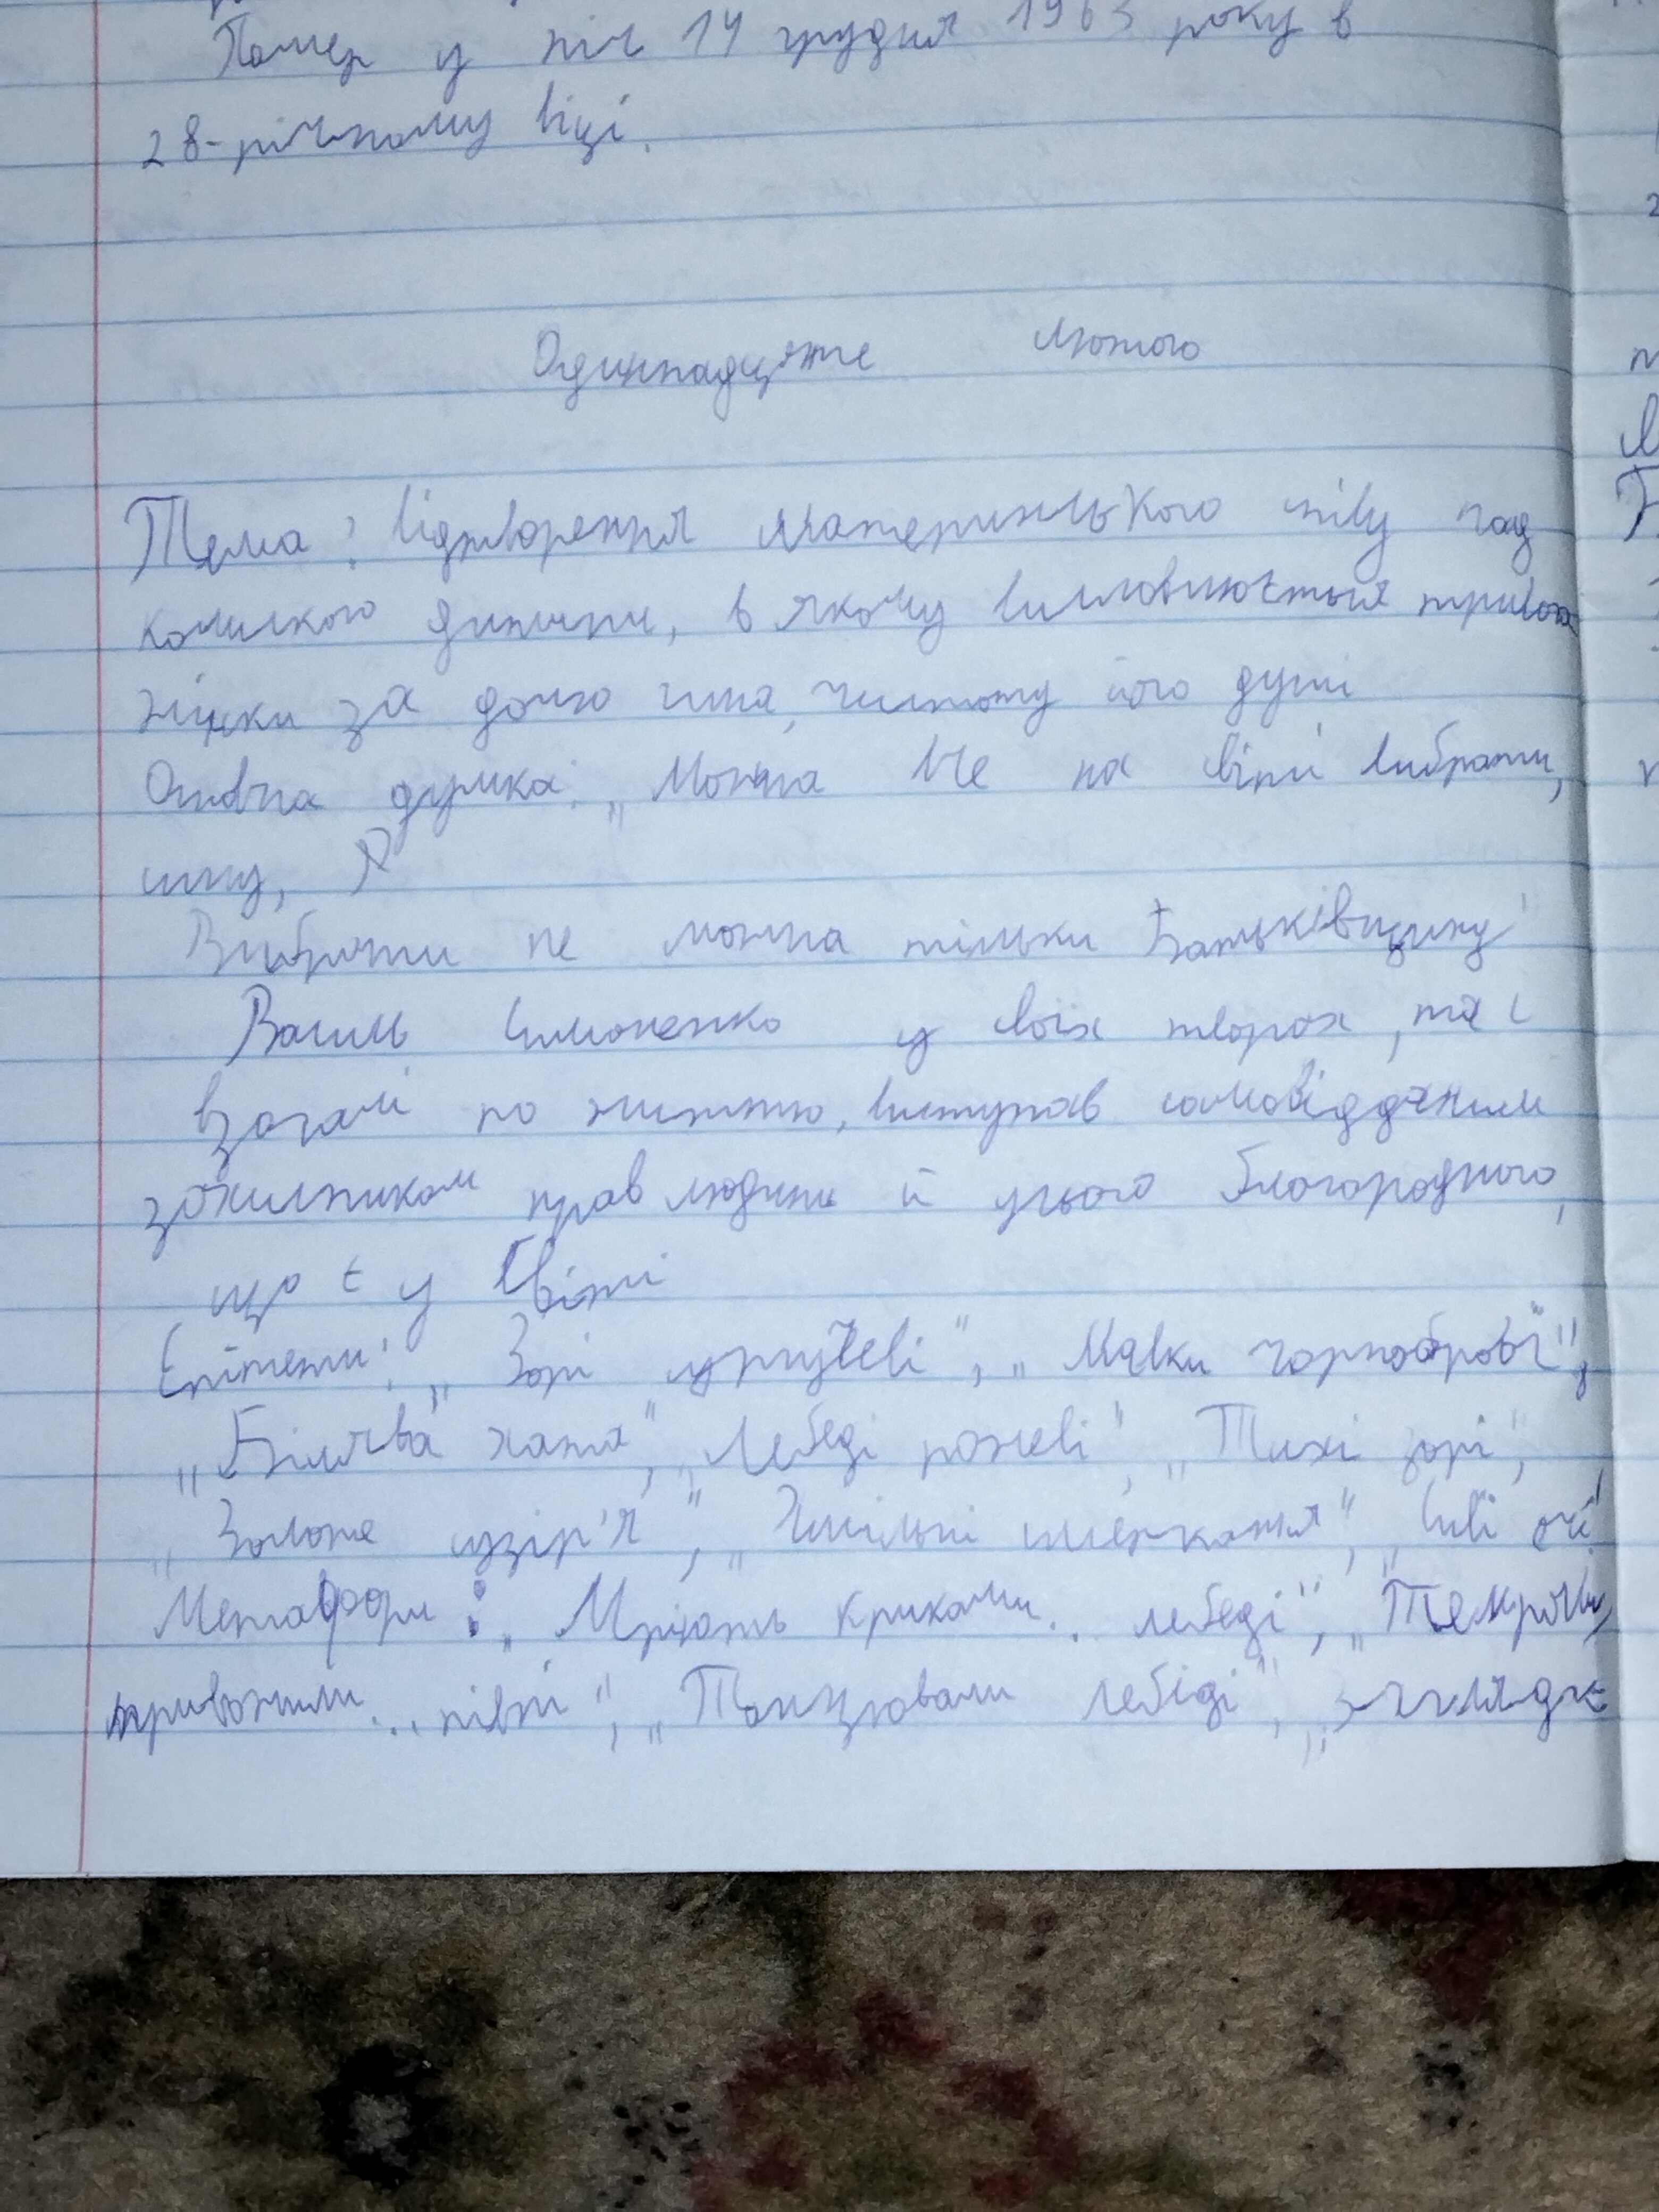 Помер у ніч 14 грудня 1963 року в
28-річному віці.
Одинадцяте лютого
Тема: відтворення материнського співу над
колискою дитини, в якому висловлюється тривога
жінки за долю сина, чистоту його душі
Основна думка: „Можна все на світі вибрати,
сину,
Вибрати не можна тільки Батьківщину"
Василь Симоненко у своїх творах, та і
взагалі по життю, виступав самовідданим
захисником прав людини й усього благородного,
що є у світі
Епітети: „Зорі сургучеві", „Мавки чорноброві",
„Білява хата", „Лебеді рожеві", „Тихі зорі",
„Золоте сузір'я", „Хмільні смеркання", „Сиві очі"
Метафори: „Мріють крилами.. лебеді",
тривожили... півні", „Танцювали лебіді",